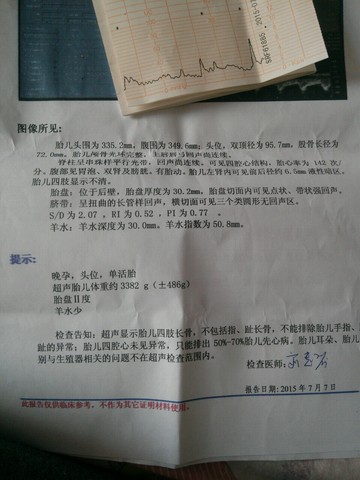 2015-0
图像所见:
胎儿头围为335.2mm,腹围为349.6mm;头位,双顶径为95.7mm,股骨长径为
72.0mm。胎儿颅骨光环完整,
脊柱呈串珠样平行光带,回声尚连续。可见四腔心结构,胎心率为 142 次/
分。腹部见胃泡、双肾及膀胱。有胎动。胎儿左肾内可见前后径约 6.5mm 液性暗区。
胎儿四肢显示不清。
胎盘:位于后壁,胎盘厚度为30.2mm,胎盘切面内可见点状、带状强回声。
脐带:呈扭曲的长管样回声。横切面可见三个类圆形无回声区。
S/D为 2.07 ,RI为 0.52 ,PI为 0.77 。
羊水:羊水深度为30.0mm。羊水指数为50.8mm。
提示:
晚孕,头位,单活胎
超声胎儿体重约3382 g(±486g)
胎盘Ⅱ度
羊水少
检查告知:超声显示胎儿四肢长骨,不包括指、趾长骨,不能排除胎儿手指、
趾的异常;胎儿四腔心未见异常,只能排出 50%-70%胎儿先心病。胎儿耳朵、胎儿
别与生殖器相关的问题不在超声检查范围内。
检查医师:
报告日期:2015 年 7 月 7 日
此报告仅供临床参考,不作为其它证明材料使用。